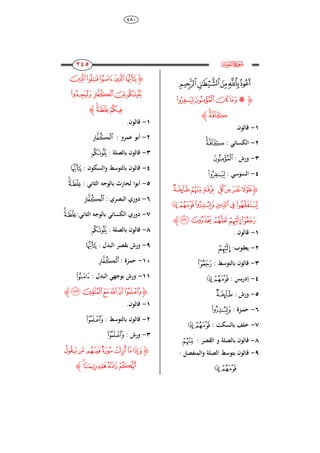 ٤٨٠
٢٤٥
أَعُوذُ بِٱللَّهِ مِنَ ٱلشَّيْطَٰنِ ٱلرَّجِيمِ
﴿ ۞ وَمَا كَانَ ٱلْمُؤْمِنُونَ لِيَنفِرُوا۟
كَآفَّةً ﴾
١- قالون.
٢- الكسائي : كَآفَّةً
٣- ورش : ٱلْمُؤْمِنُونَ
٤- السوسي : لِيَنفِرُوا۟
﴿ فَلَوْلَا نَفَرَ مِن كُلِّ فِرْقَةٍ مِّنْهُمْ طَآئِفَةٌ
لِّيَتَفَقَّهُوا۟ فِى ٱلدِّينِ وَلِيُنذِرُوا۟ قَوْمَهُمْ إِذَا
رَجَعُوٓا۟ إِلَيْهِمْ لَعَلَّهُمْ يَحْذَرُونَ ﴾
١- قالون .
٢- يعقوب: إِلَيْهُمْ
٣- قالون بالتوسط : رَجَعُوٓا۟
٤- إدريس : قَوْمَهُمْ إِذَا
٥- ورش : طَآئِفَةٌ
٦- حمزة : وَلِيُنذِرُوا۟
٧- خلف بالسكت : قَوْمَهُمْ إِذَا
٨- قالون بالصلة و القصر : مِّنْهُمُ
٩- قالون بتوسط الصلة والمنفصل :
قَوْمَهُمُ إِذَا
﴿ يَٰٓأَيُّهَا ٱلَّذِينَ ءَامَنُوا۟ قَٰتِلُوا۟ ٱلَّذِينَ
يَلُونَكُم مِّنَ ٱلْكُفَّارِ وَلْيَجِدُوا۟
فِيكُمْ غِلْظَةً ﴾
١- قالون.
٢- أبو عمرو : ٱلْكُفَّارِ
٣- قالون بالصلة : يَلُونَكُم
٤- قالون بالتوسط والسكون : يَٰٓأَيُّهَا
٥- أبوا لحارث بالوجه الثاني : غِلْظَةً
٦- دوري البصري : ٱلْكُفَّارِ
٧- دوري الكسائي بالوجه الثاني: غِلْظَةً
٨- قالون بالصلة : يَلُونَكُم
٩- ورش بقصر البدل : يَٰٓأَيُّهَا
١٠- حمزة : ٱلْكُفَّارِ
١١- ورش بوجهي البدل : ءَامَنُوا۟
﴿ وَٱعْلَمُوٓا۟ أَنَّ ٱللَّهَ مَعَ ٱلْمُتَّقِينَ ﴾
١- قالون.
٢- قالون بالتوسط : وَٱعْلَمُوٓا۟
٣- ورش : وَٱعْلَمُوٓا۟
﴿ وَإِذَا مَآ أُنزِلَتْ سُورَةٌ فَمِنْهُم مَّن يَقُولُ
أَيُّكُمْ زَادَتْهُ هَٰذِهِۦٓ إِيمَٰنًا ﴾